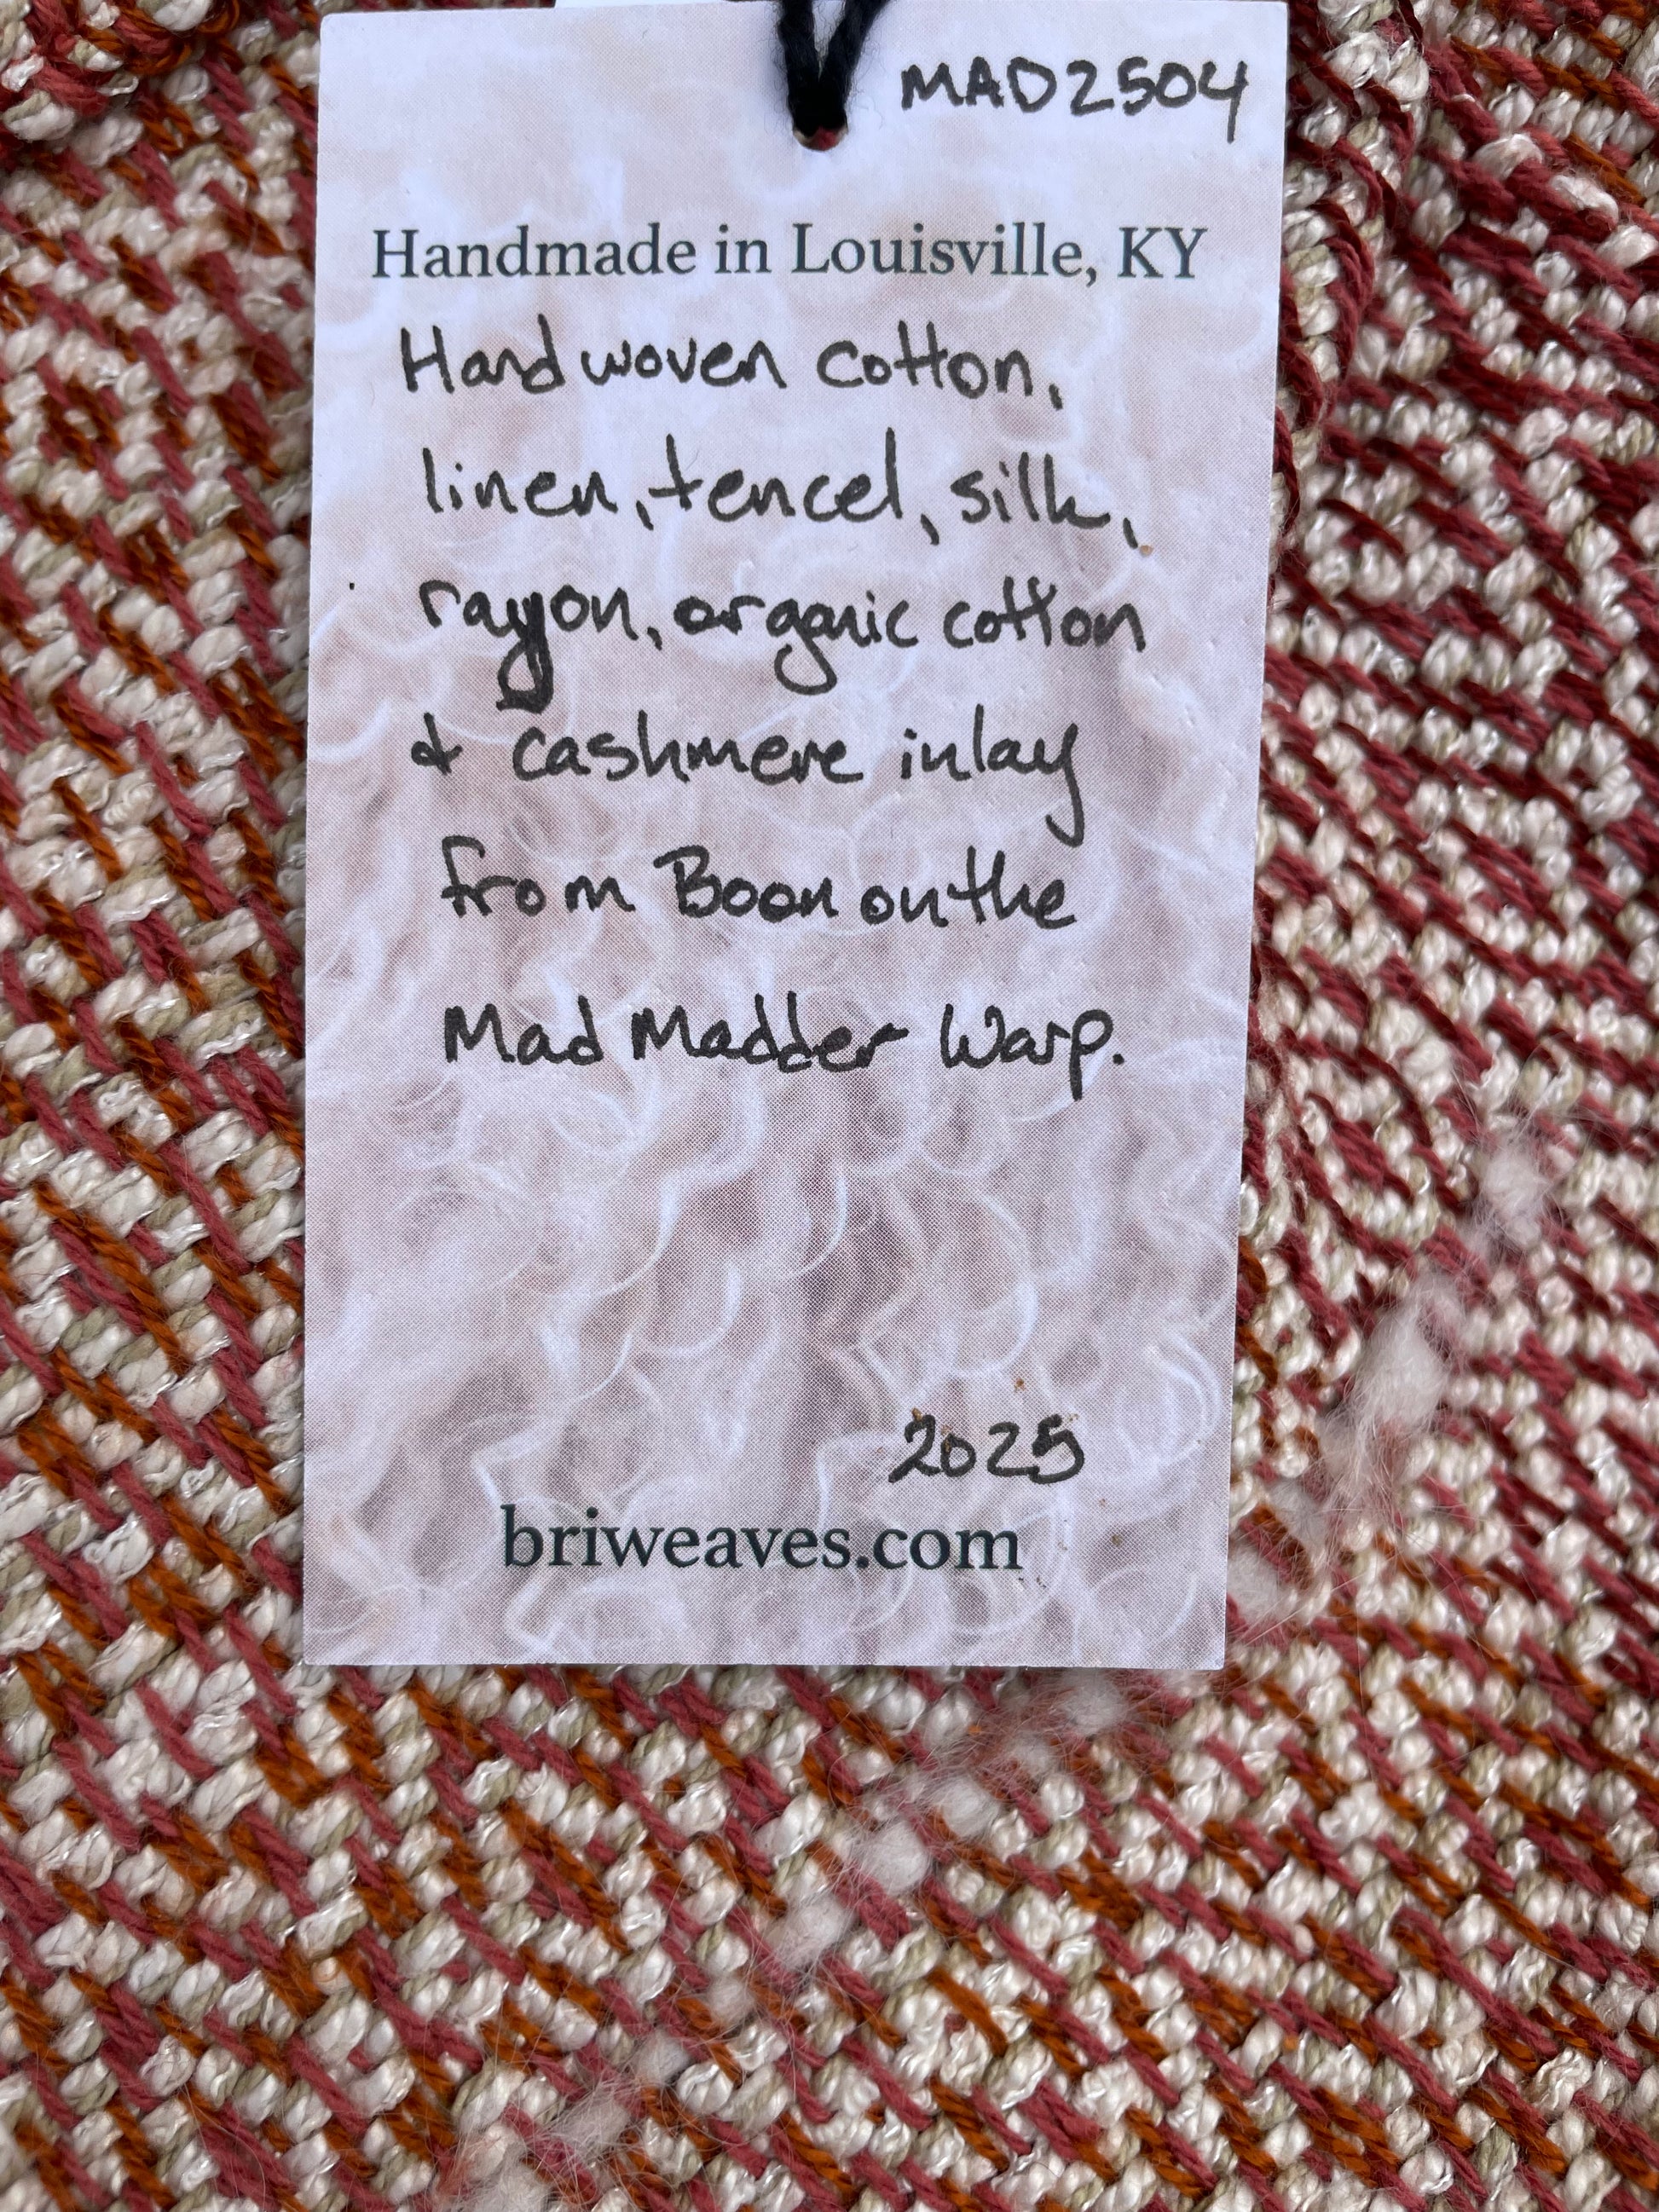 MAD2504
Handmade in Louisville, KY
Handwoven cotton,
linen, tencel, silk,
rayon, organic cotton
& cashmere inlay
from Boon on the
Mad Madder Warp.
2025
briweaves.com